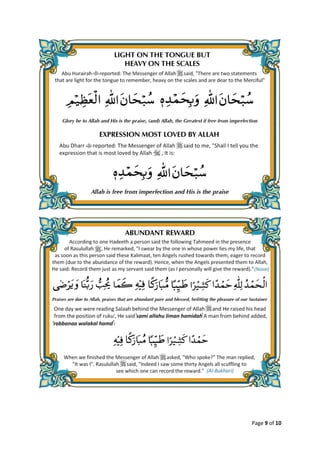 LIGHT ON THE TONGUE BUT
HEAVY ON THE SCALES
Abu Hurairah رضي الله عنه reported: The Messenger of Allah ﷺ said, "There are two statements
that are light for the tongue to remember, heavy on the scales and are dear to the Merciful"
سُبْحَانَ اللهِ وَبِحَمْدِهٖ سُبْحَانَ اللهِ الْعَظِيْمِ
Glory be to Allah and His is the praise, (and) Allah, the Greatest if free from imperfection
EXPRESSION MOST LOVED BY ALLAH
Abu Dharr رضي الله عنه reported: The Messenger of Allah ﷺ said to me, "Shall I tell you the
expression that is most loved by Allah , It is:
سُبْحَانَ اللهِ وَبِحَمْدِهٖ
Allah is free from imperfection and His is the praise
ABUNDANT REWARD
According to one Hadeeth a person said the following Tahmeed in the presence
of Rasulullah ﷺ, He remarked, "I swear by the one in whose power lies my life, that
as soon as this person said these Kalimaat, ten Angels rushed towards them, eager to record
them (due to the abundance of the reward). Hence, when the Angels presented them to Allah,
He said: Record them just as my servant said them (as I personally will give the reward)."(Nasai)
اَلْحَمْدُ لِلّٰهِ حَمْدًا كَثِيْرًا طَيِّبًا مُّبَارَكًا فِيْهِ كَمَا يُحِبُّ رَبُّنَا وَيَرْضٰى
Praises are due to Allah, praises that are abundant pure and blessed, befitting the pleasure of our Sustainer
One day we were reading Salaah behind the Messenger of Allah ﷺ and He raised his head
from the position of ruku', He said 'sami allahu liman hamidah' A man from behind added,
'rabbanaa walakal hamd':
حَمْدًا كَثِيْرًا طَيِّبًا مُّبَارَكًا فِيْهِ
When we finished the Messenger of Allah ﷺ asked, "Who spoke?" The man replied,
"It was I". Rasulullah ﷺ said, "Indeed I saw some thirty Angels all scuffling to
see which one can record the reward." (Al-Bukhari)
Page 9 of 10